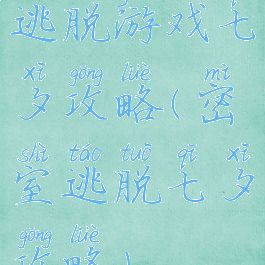 逃脱游戏七
xī gōng lüè mì
夕攻略(密
shì táo tuō qī xī
室逃脱七夕
gōng lüè
攻略)